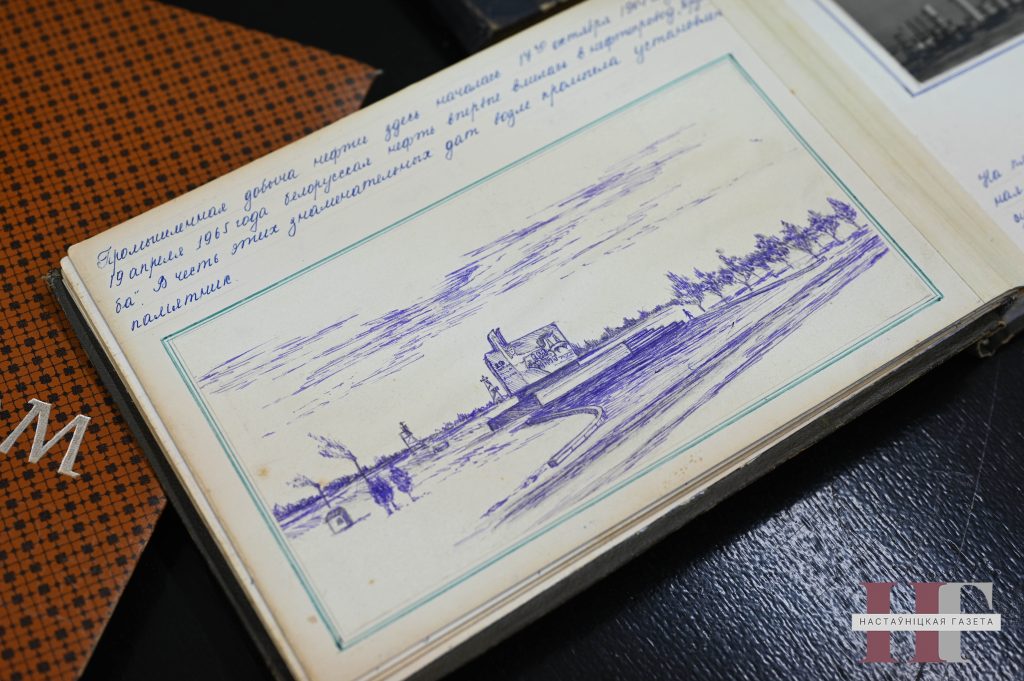 Промышленная добыча нефти здесь началась 14го октября
19 апреля 1965 года белорусская нефть впервые влилась в нефтепровод
ба". В честь этих знаменательных дат возле промысла установлен
памятник.
На
М
НГ
НАСТАЎНІЦКАЯ ГАЗЕТА